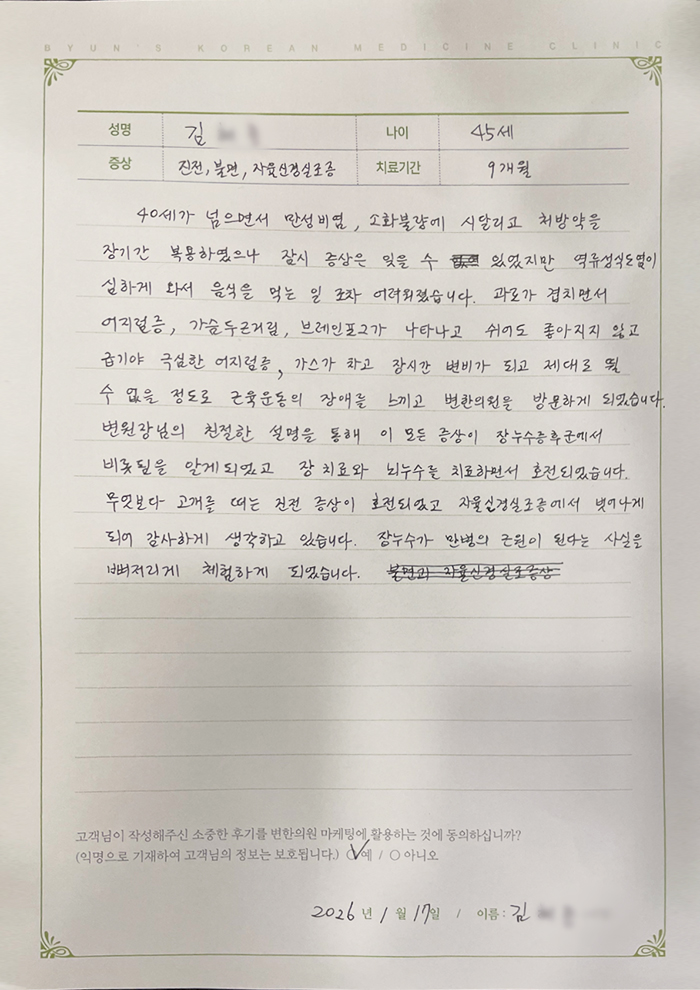 BYUN'S KOREAN MEDICINE CLINIC
성명 김 나이 45세
증상 진전, 불면, 자율신경실조증 치료기간 9개월
40세가 넘으면서 만성비염, 소화불량에 시달리고 처방약을
장기간 복용하였으나 잠시 증상은 잊을 수 있었지만 역류성식도염이
심하게 와서 음식을 먹는 일 조차 어려워졌습니다. 과로가 겹치면서
어지럼증, 가슴두근거림, 브레인포그가 나타나고 쉬어도 좋아지지 않고
급기야 극심한 어지럼증, 가스가 차고 장시간 변비가 되고 제대로
수 없을 정도로 근육운동의 장애를 느끼고 변한의원을 방문하게 되었습니다.
변원장님의 친절한 설명을 통해 이 모든 증상이 장누수증후군에서
비롯됨을 알게되었고 장 치료와 뇌누수를 치료하면서 호전되었습니다.
무엇보다 고개를 떠는 진전 증상이 호전되었고 자율신경실조증에서 벗어나게
되어 감사하게 생각하고 있습니다. 장누수가 만병의 근원이 된다는 사실을
뼈저리게 체험하게 되었습니다. 불면과 자율신경실조증상
고객님이 작성해주신 소중한 후기를 변한의원 마케팅에 활용하는 것에 동의하십니까?
(익명으로 기재하여 고객님의 정보는 보호됩니다.) ○예 / ○아니오
2026년 1월 17일 / 이름: 김